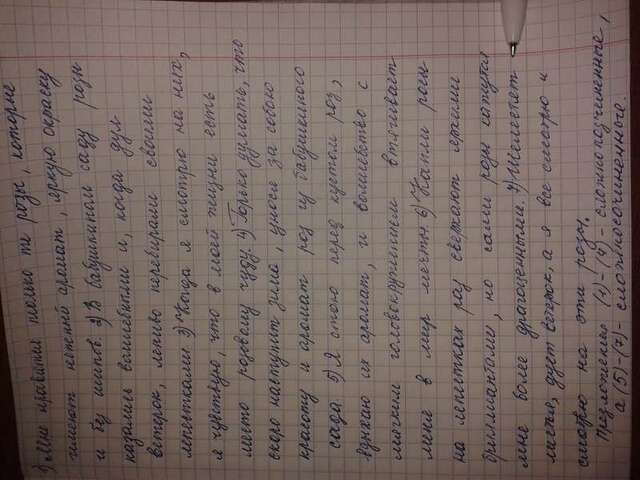 1) Мне нравятся только те розы, которые
имеют нежный аромат, яркую окраску
и без шипов. 2) В бабушкином саду розы
казались волшебными и, когда дул
ветерок, лениво перебирали своими
лепестками. 3) Когда я смотрю на них,
я чувствую, что в моей жизни есть
место розовому чуду. 4) Горько думать, что
скоро наступит зима, унося за собою
красоту и аромат роз из бабушкиного
сада. 5) Я стою перед кустом роз,
вдыхаю их аромат, и волшебство с
лёгким головокружением втягивает
меня в мир мечты. 6) Капли росы
на лепестках роз сверкают яркими
бриллиантами, но сами розы кажутся
мне более драгоценными. 7) Шелестят
листья, дует ветерок, а я все смотрю и
смотрю на эти розы.
Предложения (1)-(4) - сложноподчиненные,
а (5)-(7) - сложносочиненные.